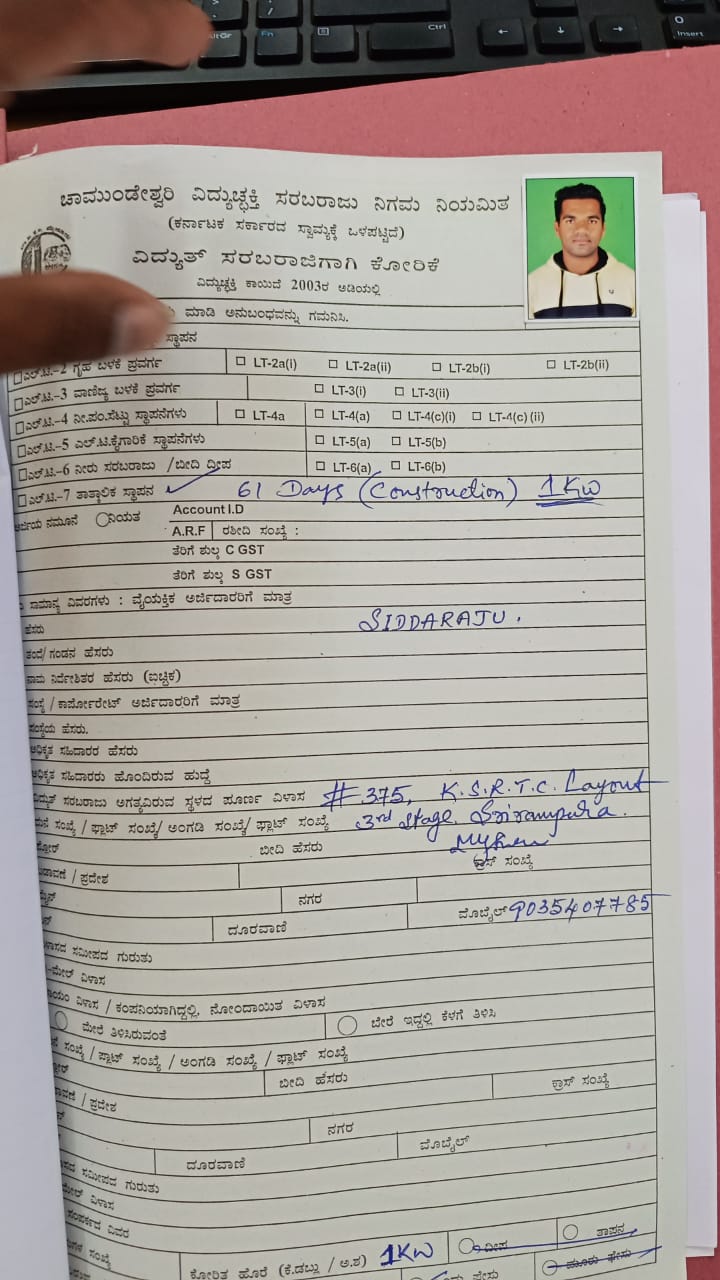 AltGr Fn Ctrl ← ↓ → O Insert
ಚಾಮುಂಡೇಶ್ವರಿ ವಿದ್ಯುಚ್ಛಕ್ತಿ ಸರಬರಾಜು ನಿಗಮ ನಿಯಮಿತ
(ಕರ್ನಾಟಕ ಸರ್ಕಾರದ ಸ್ವಾಮ್ಯಕ್ಕೆ ಒಳಪಟ್ಟಿದೆ)
ವಿದ್ಯುತ್ ಸರಬರಾಜಿಗಾಗಿ ಕೋರಿಕೆ
ವಿದ್ಯುಚ್ಛಕ್ತಿ ಕಾಯಿದೆ 2003ರ ಅಡಿಯಲ್ಲಿ
ಮಾಡಿ ಅನುಬಂಧವನ್ನು ಗಮನಿಸಿ.
ಸ್ಥಾಪನ
ಎಲ್.ಟಿ.-2 ಗೃಹ ಬಳಕೆ ಪ್ರವರ್ಗ □ LT-2a(i) □ LT-2a(ii) □ LT-2b(i) □ LT-2b(ii)
□ಎಲ್.ಟಿ.-3 ವಾಣಿಜ್ಯ ಬಳಕೆ ಪ್ರವರ್ಗ □ LT-3(i) □ LT-3(ii)
□ಎಲ್.ಟಿ.-4 ನೀ.ಪಂ.ಸೆಟ್ಟು ಸ್ಥಾಪನೆಗಳು □ LT-4a □ LT-4(a) □ LT-4(c)(i) □ LT-4(c) (ii)
□ಎಲ್.ಟಿ.-5 ಎಲ್.ಟಿ.ಕೈಗಾರಿಕೆ ಸ್ಥಾಪನೆಗಳು □ LT-5(a) □ LT-5(b)
□ಎಲ್.ಟಿ.-6 ನೀರು ಸರಬರಾಜು /ಬೀದಿ ದೀಪ □ LT-6(a) □ LT-6(b)
□ಎಲ್.ಟಿ.-7 ತಾತ್ಕಾಲಿಕ ಸ್ಥಾಪನ ✓ 61 Days (Construction) 1 KW
ಅರ್ಜಿಯ ನಮೂನೆ ನಿಯತ Account I.D
A.R.F ರಶೀದಿ ಸಂಖ್ಯೆ :
ತೆರಿಗೆ ಶುಲ್ಕ C GST
ತೆರಿಗೆ ಶುಲ್ಕ S GST
ಸಾಮಾನ್ಯ ವಿವರಗಳು : ವೈಯಕ್ತಿಕ ಅರ್ಜಿದಾರರಿಗೆ ಮಾತ್ರ
ಹೆಸರು SIDDARAJU.
ತಂದೆ/ ಗಂಡನ ಹೆಸರು
ನಾಮ ನಿರ್ದೇಶಿತರ ಹೆಸರು (ಐಚ್ಛಿಕ)
ಸಂಸ್ಥೆ / ಕಾರ್ಪೋರೇಟ್ ಅರ್ಜಿದಾರರಿಗೆ ಮಾತ್ರ
ಸಂಸ್ಥೆಯ ಹೆಸರು.
ಅಧಿಕೃತ ಸಹಿದಾರರ ಹೆಸರು
ಅಧಿಕೃತ ಸಹಿದಾರರು ಹೊಂದಿರುವ ಹುದ್ದೆ
ವಿದ್ಯುತ್ ಸರಬರಾಜು ಅಗತ್ಯವಿರುವ ಸ್ಥಳದ ಪೂರ್ಣ ವಿಳಾಸ # 375, K.S.R.T.C. Layout
ಮನೆ ಸಂಖ್ಯೆ / ಫ್ಲಾಟ್ ಸಂಖ್ಯೆ/ ಅಂಗಡಿ ಸಂಖ್ಯೆ/ ಫ್ಲಾಟ್ ಸಂಖ್ಯೆ 3rd Stage, Srirampura.
ಬೀದಿ ಹೆಸರು Mysuru
ಕ್ರಾಸ್ ಸಂಖ್ಯೆ
ಬಡಾವಣೆ / ಪ್ರದೇಶ
ನಗರ
ದೂರವಾಣಿ ಮೊಬೈಲ್ 9035407785
ವಿಳಾಸದ ಸಮೀಪದ ಗುರುತು
ಇ-ಮೇಲ್ ವಿಳಾಸ
ಖಾಯಂ ವಿಳಾಸ / ಕಂಪನಿಯಾಗಿದ್ದಲ್ಲಿ, ನೋಂದಾಯಿತ ವಿಳಾಸ
ಮೇಲೆ ತಿಳಿಸಿರುವಂತೆ ಬೇರೆ ಇದ್ದಲ್ಲಿ ಕೆಳಗೆ ತಿಳಿಸಿ
ಸಂಖ್ಯೆ / ಪ್ಲಾಟ್ ಸಂಖ್ಯೆ / ಅಂಗಡಿ ಸಂಖ್ಯೆ / ಫ್ಲಾಟ್ ಸಂಖ್ಯೆ
ಬೀದಿ ಹೆಸರು ಕ್ರಾಸ್ ಸಂಖ್ಯೆ
/ ಪ್ರದೇಶ
ನಗರ
ದೂರವಾಣಿ ಮೊಬೈಲ್
ಸಮೀಪದ ಗುರುತು
ಮೇಲ್ ವಿಳಾಸ
ಸಂಪರ್ಕದ ವಿವರ
ಸಂಖ್ಯೆ ಕೋರಿತ ಹೊರೆ (ಕೆ.ಡಬ್ಲು / ಅ.ಶ) 1KW ದೀಪ ತಾಪನ
ಫೇಸು ಮೂರು ಫೇಸು